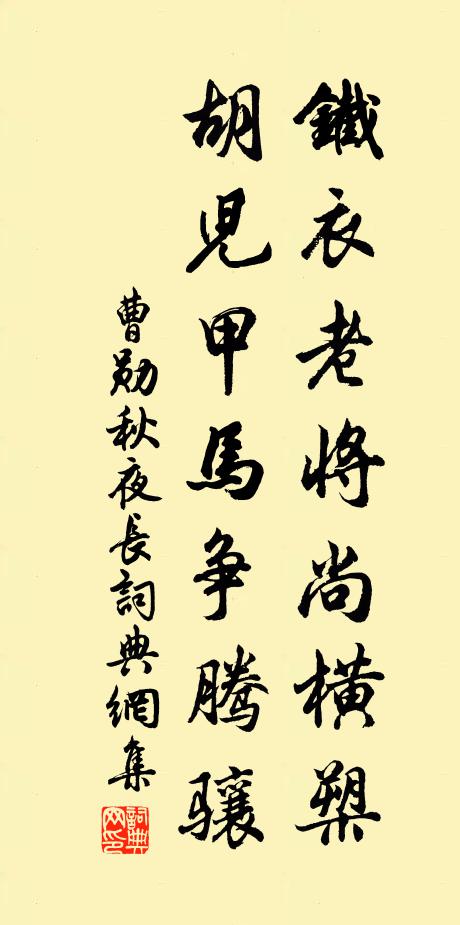 鐵衣老將尚橫槊
胡児甲馬争騰驤
曹勛秋夜長詞典網集
詞典网印